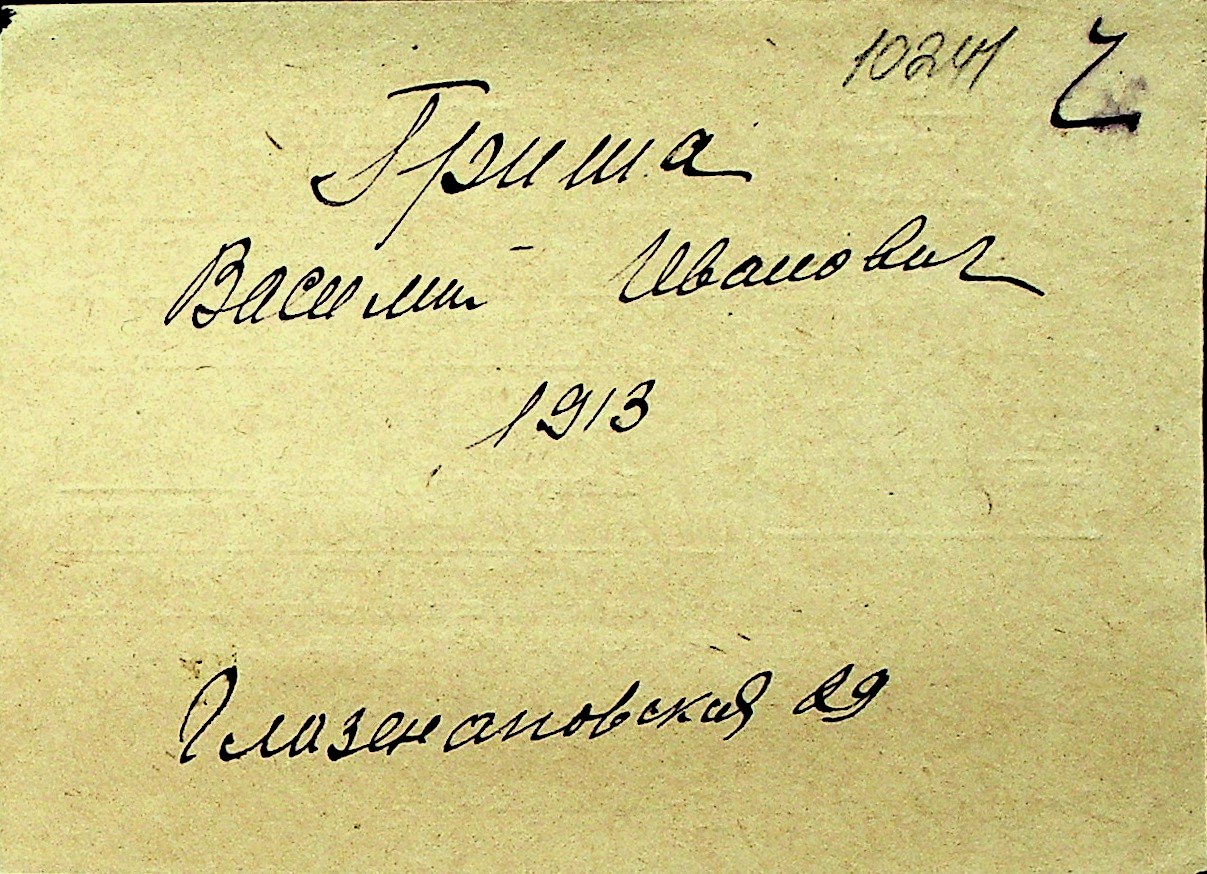 10241
Гриша
Василий Иванович
1913
Глазенаповская 29